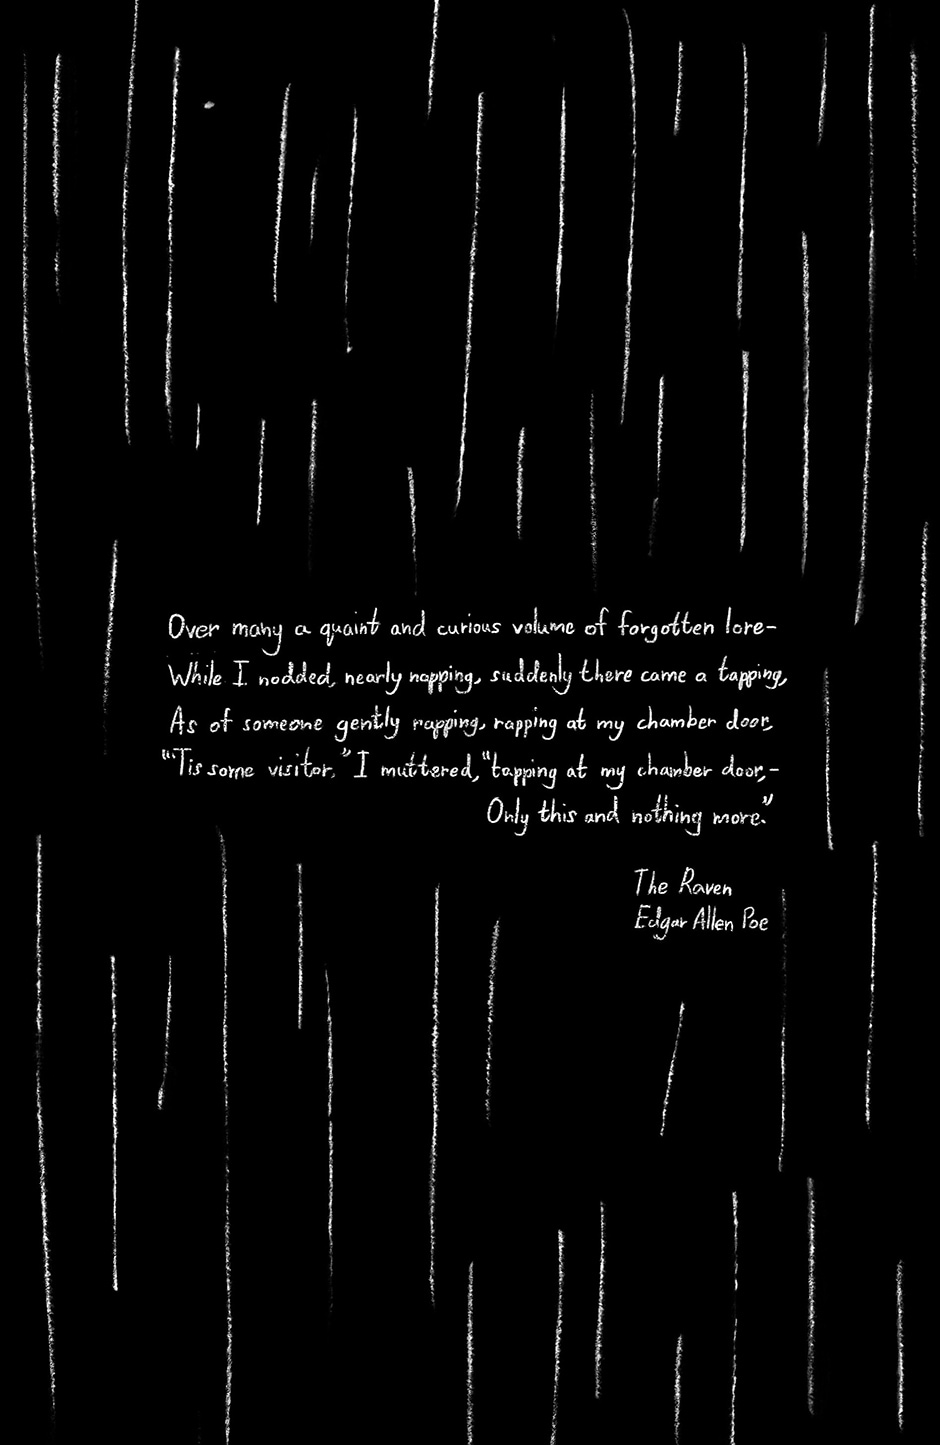 Over many a quaint and curious volume of forgotten lore-
While I nodded, nearly napping, suddenly there came a tapping,
As of someone gently rapping, rapping at my chamber door,
"'Tis some visitor," I muttered, "tapping at my chamber door,-
Only this and nothing more."
The Raven
Edgar Allen Poe